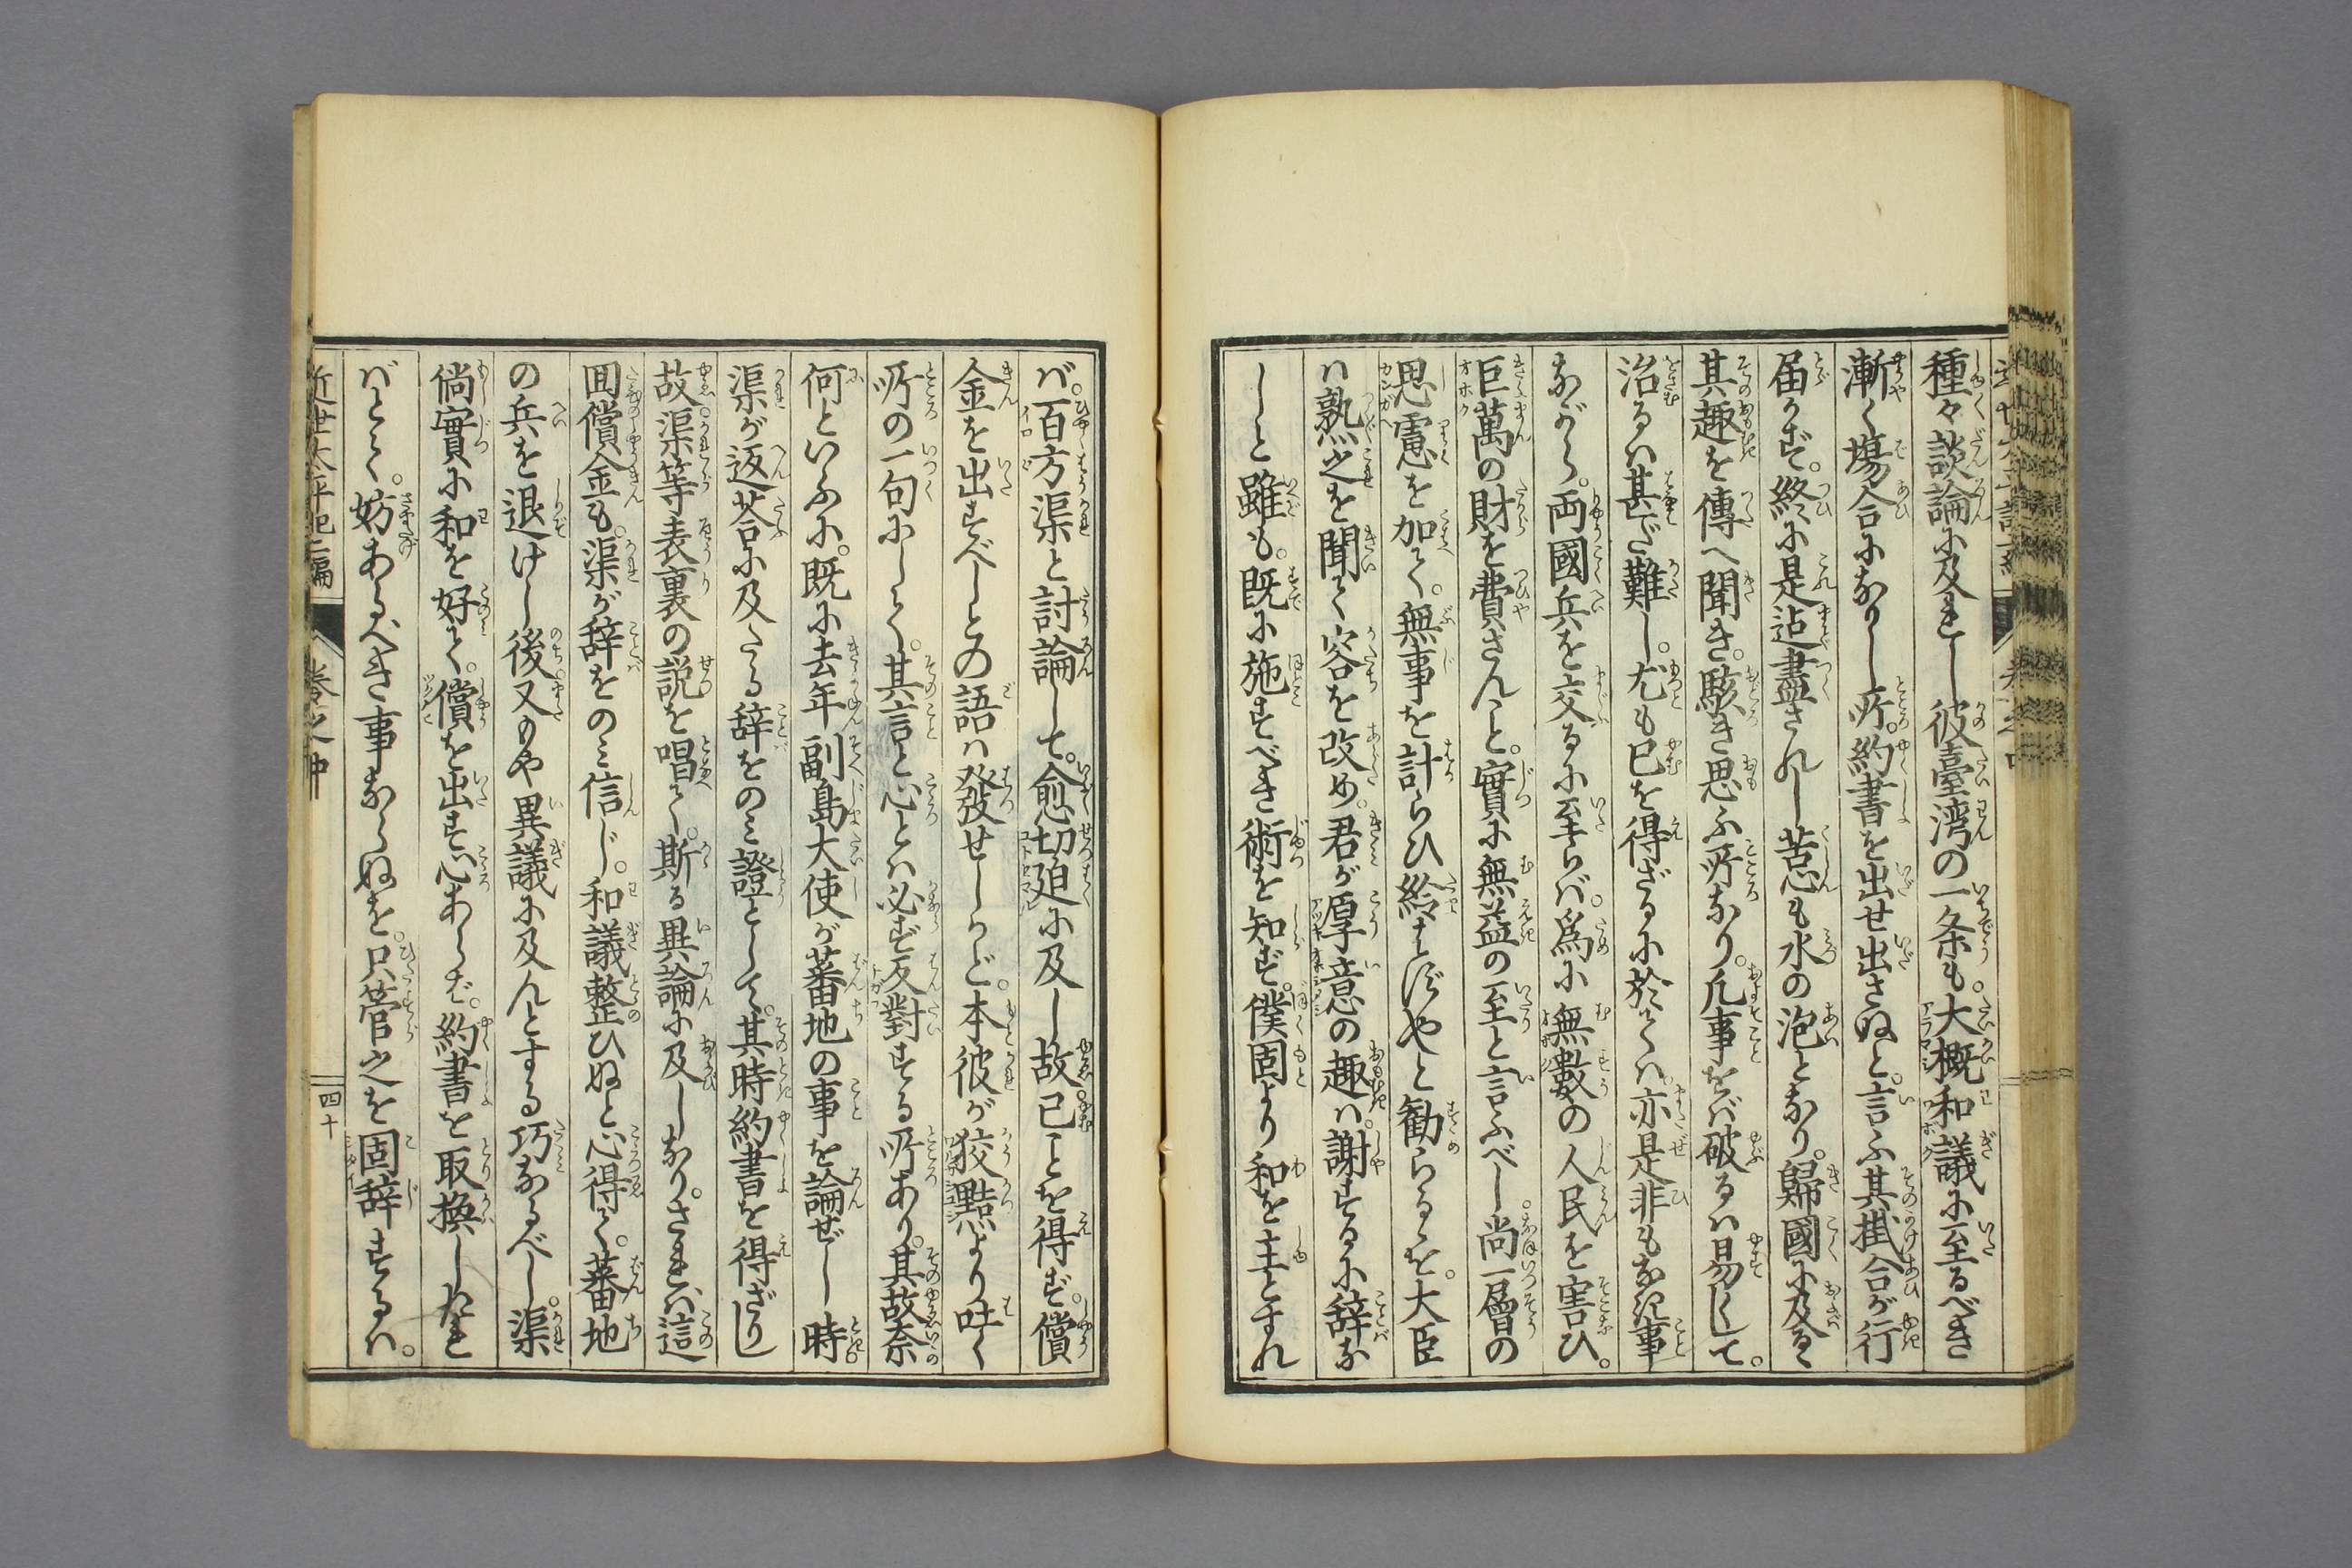 種々談論に及むし彼臺湾の一条も。大概和議に至るべき
漸く塲合になりし所。約書を出せ出さぬと。言ふ其掛合が行
届かず。終に是迠盡されし苦心も水の泡となり。歸國に及ると
其趣を傳へ聞き。駭き思ふ所なり。凡事をば破るハ易くして。
治るハ甚だ難し。尤も已を得ざるに於てハ。亦是非もなき事
ながら。両國兵を交るに至らバ。爲に無數の人民を害ひ。
巨萬の財を費さんと。實に無益の至と言ふべし。尚一層の
思慮を加て。無事を計らひ給はずやと勧らるゝを。大臣
ハ熟之を聞て容を改め。君が厚意の趣ハ。謝するに辞な
しと雖も。既に施すべき術を知ず。僕固より和を主とすれ
バ。百方渠と討論して。愈切廹に及し故已ことを得ず。償
金を出すべしとの語ハ發せしかど。本彼が狡黠より吐く
所の一句にして。其言と心とハ必ず反對する所あり。其故奈
何といふに。既に去年副島大使が蕃地の事を論ぜし時。
渠が返荅に及たる辞をのミ證として。其時約書を得ざりし
故。渠等表裏の説を唱て。斯る異論に及しなり。されバ這
囬償金も。渠が辞をのミ信じ。和議整ひぬと心得て。蕃地
の兵を退けし後。又もや異議に及んとする巧なるべし。渠
倘實に和を好て。償を出す心あらバ。約書を取換したれ
バとて。妨あるべき事ならぬを。只管之を固辞するハ。
近世太平記二編
巻之中
四十